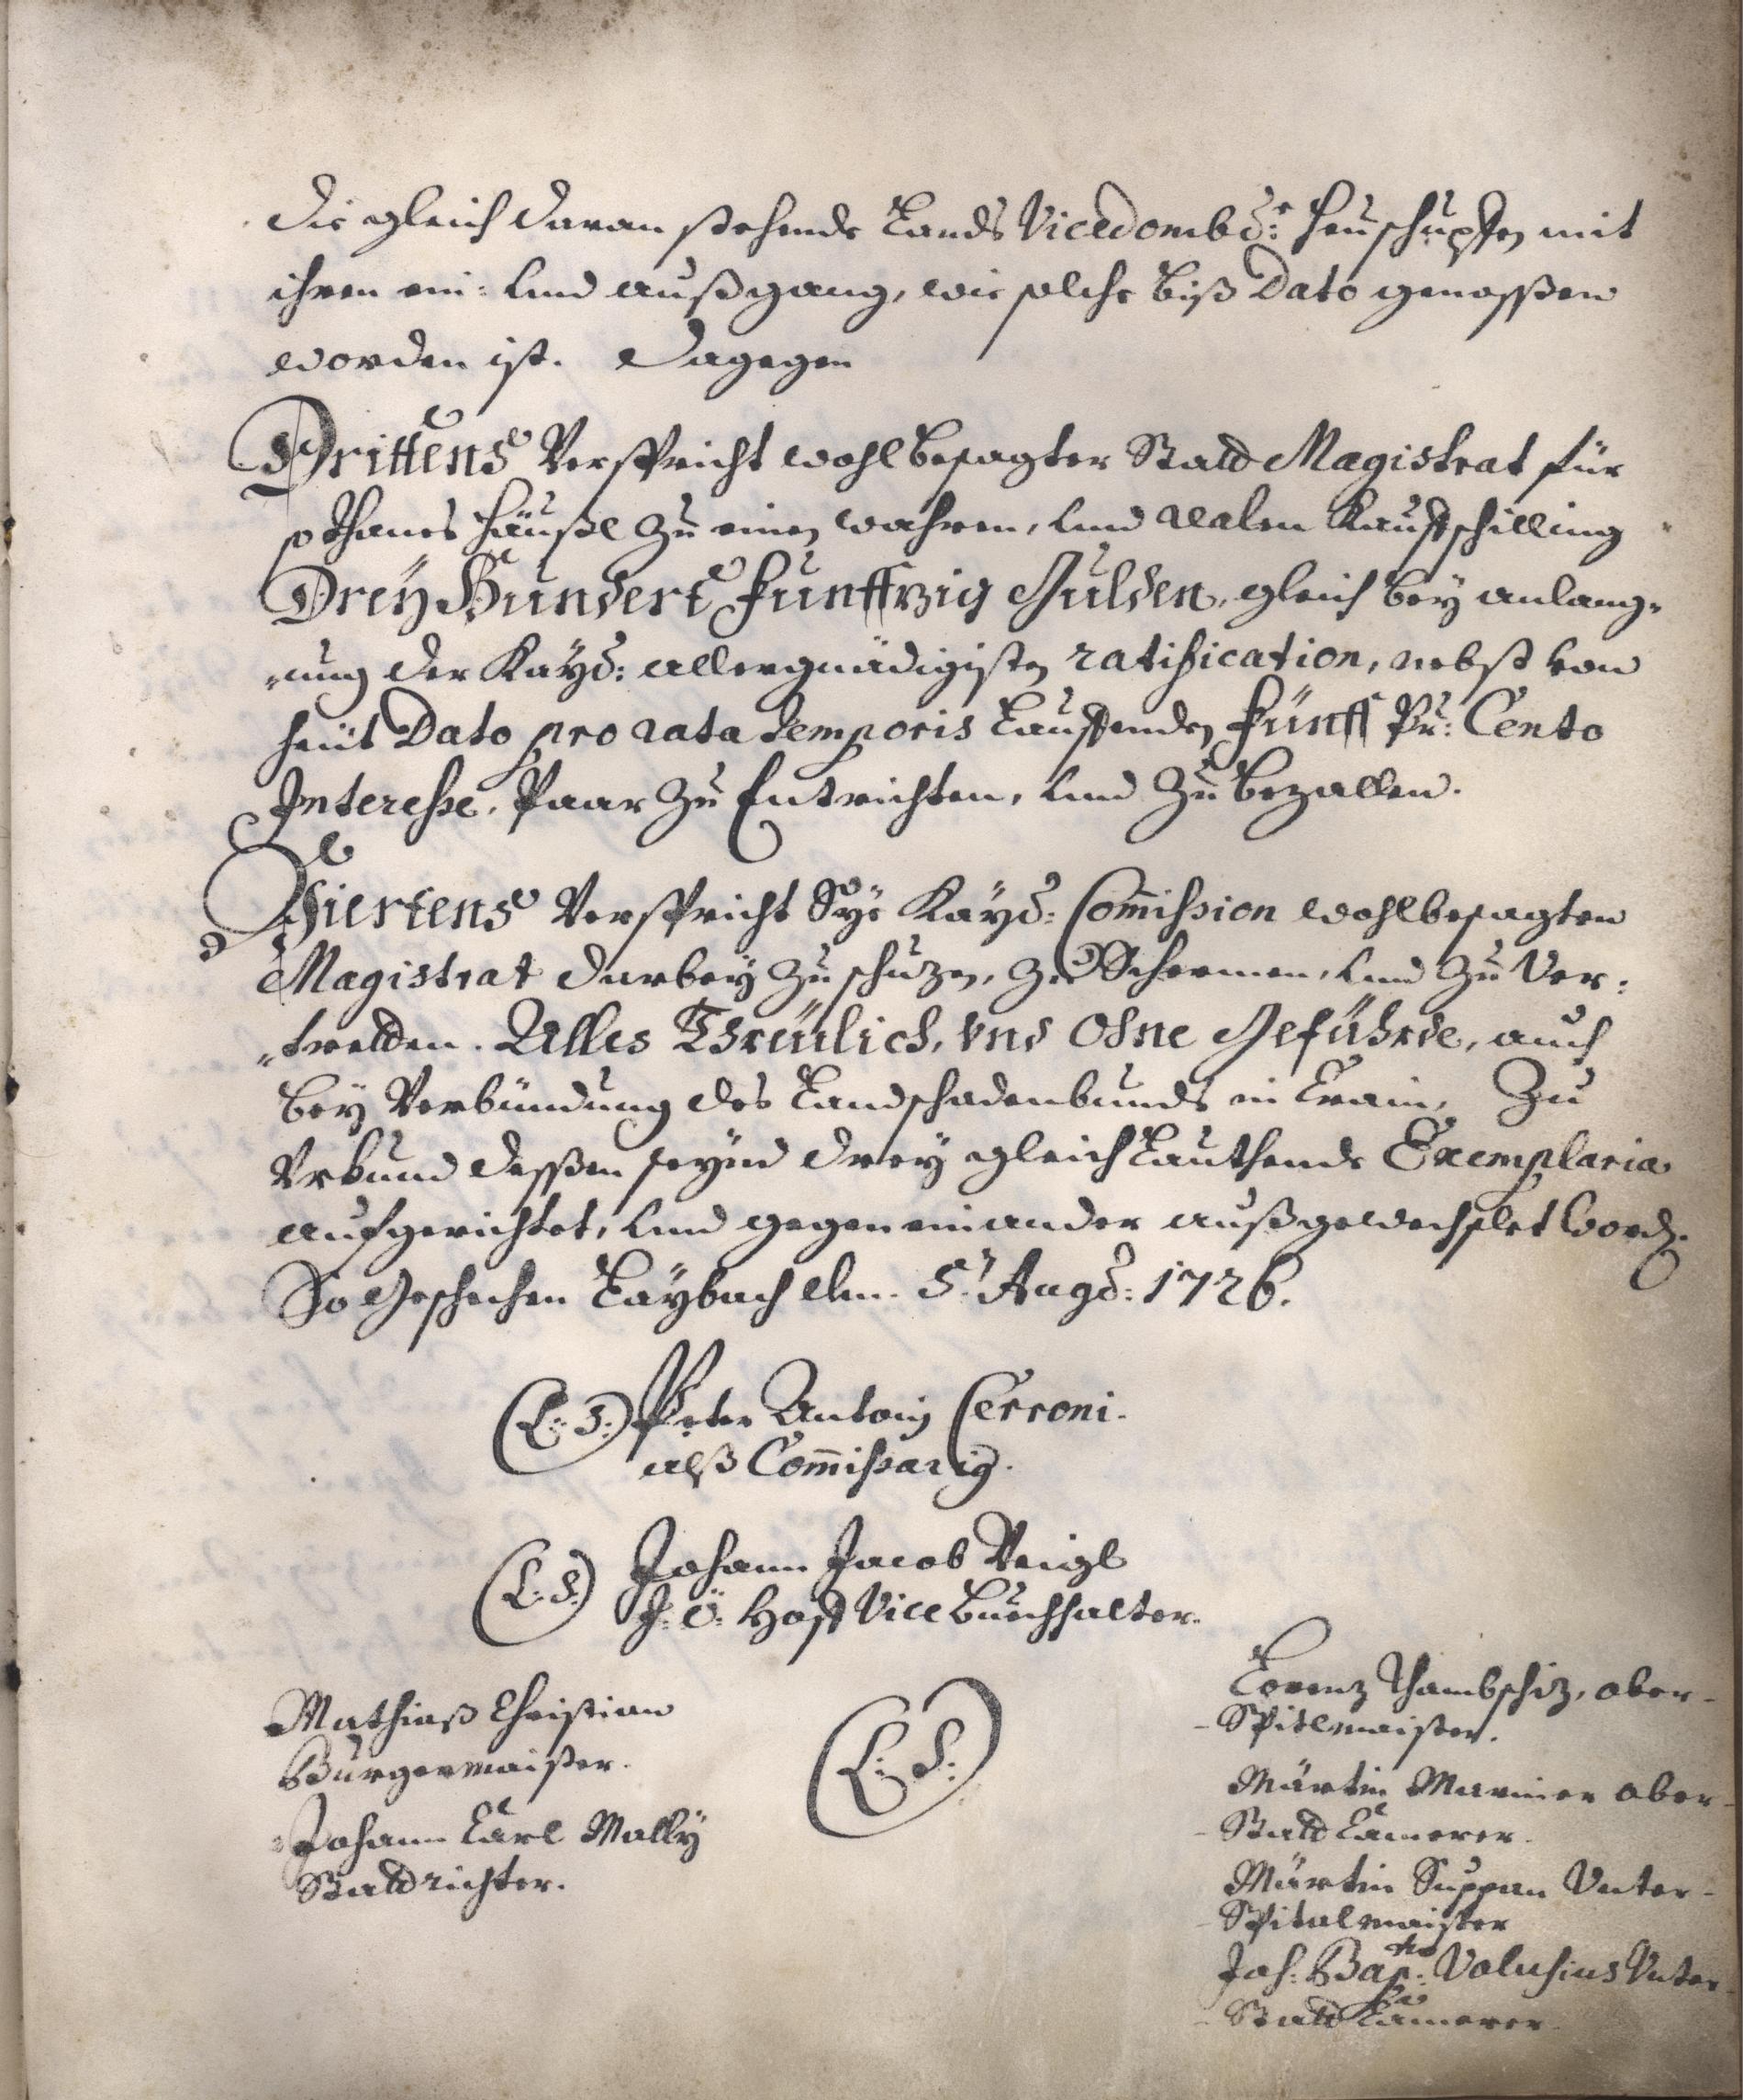 die gleich daran stehende Lands Vicedombs: Heuschupfen mit
ihren ein: und außgang, wie solche biß Dato genossen
worden ist. Dagegen
Drittens Verspricht wohlbesagter Statt Magistrat für
sothanes Häußl zu einen wahren, und realen Kauffschilling
Drey Hundert Funffzig Gulden, gleich bey anlang-
-ung der Kays: allergnädigisten ratification, nebst von
heüt Dato pro rata temporis Lauffenden Fünff Pr: Cento
Interesse, Paar zu Entrichten, und zu bezallen.
Viertens Verspricht Sye Kays: Commission wohlbesagten
Magistrat darbey zu schuzen, zu Schermen, und zu Ver:
-tretten. Alles Threülich, vnd Ohne Geführde, auch
bey Verbündung des Landschadenbunds in Crain, Zu
Vrkund dessen seynd drey gleich Lauthende Exemplaria
aufgerichtet, und gegen einander außgewechslet word.
So Geschechen Laybach den 5.t Augs: 1726.
(L: S:) Peter Antoni Cerroni.
alß Commissarig.
(L: S:) Johann Jacob Weigl
J: Ö: Hoff Vice Buechhalter.
Mathiaß Christian
Burgermaister.
Johann Carl Mally
Stattrichter.
(L: S:)
Lorenz Thambschiz, ober-
-Spitlmaister.
Märtin Mariner ober-
-Statt Camerer.
Märtin Suppan Vnter-
-Spitalmaister
Joh: Bap:ta Volusius Vnter-
-Statt Camerer